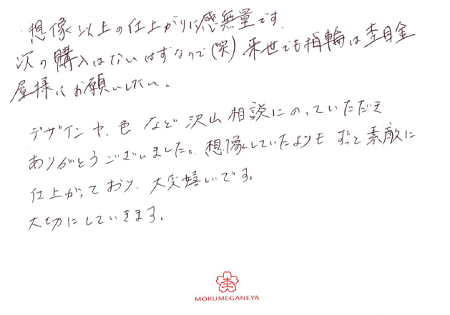 想像以上の仕上がりに感無量です。
次の購入はないはずなので(笑)来世でも指輪は杢目金
屋様にお願いしたい。
デザインや、色など沢山相談にのっていただき
ありがとうございました。想像していたよりもずっと素敵に
仕上がっており、大変嬉しいです。
大切にしていきます。
杢
MOKUMEGANEYA